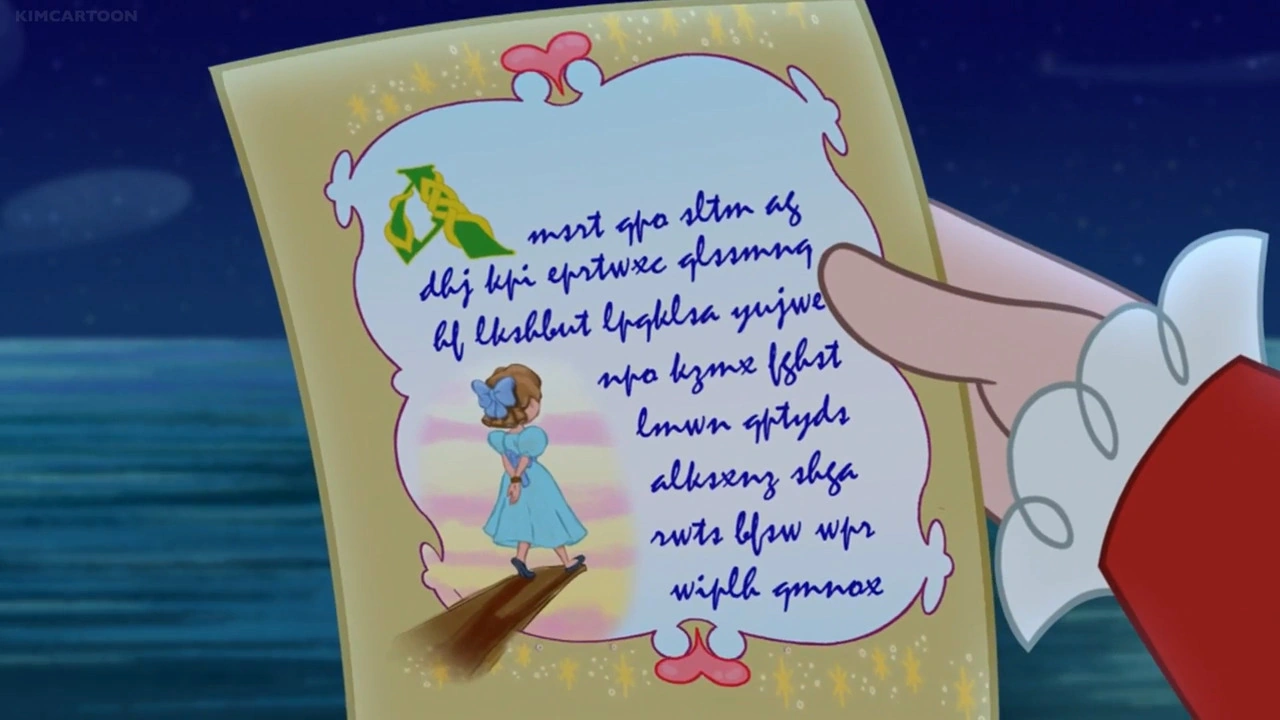 KIMCARTOON
A msrt qpo sltm ag
dhj kpi eprtwxc qlssmnq
hf lkshbut lpqklsa yujwe
npo kzmx fghst
lmwn qptyds
alksxnz shga
rwts bfsw wpr
wiplh qmnox